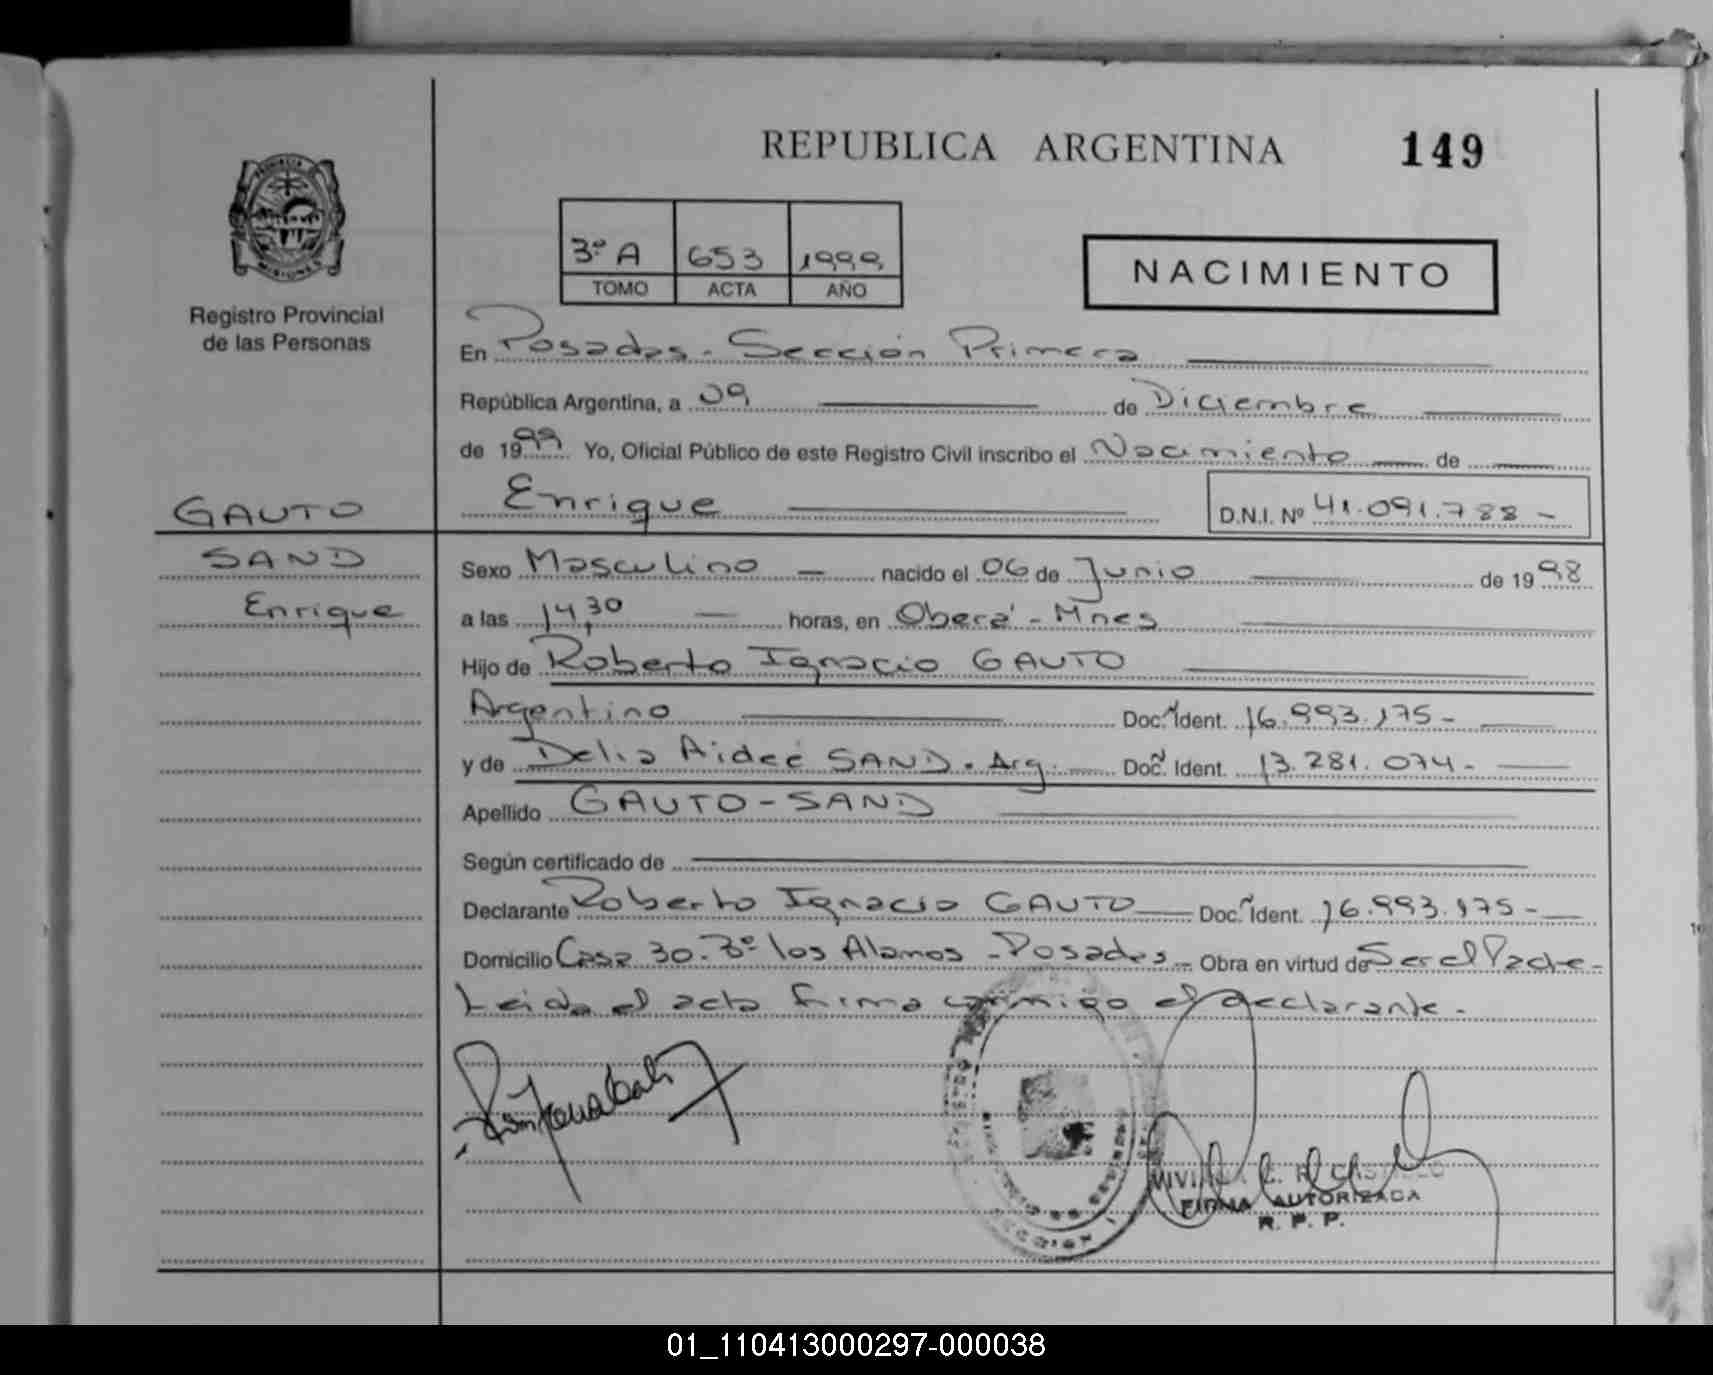 REPUBLICA ARGENTINA 149
3º A 653 1999
TOMO ACTA AÑO
NACIMIENTO
MISIONES
Registro Provincial
de las Personas
En Posadas - Sección Primera
República Argentina, a 09 de Diciembre
de 1999 Yo, Oficial Público de este Registro Civil inscribo el Nacimiento de
GAUTO
Enrique D.N.I. Nº 41.091.788 -
SAND
Sexo Masculino nacido el 06 de Junio de 1998
Enrique
a las 14,30 horas, en Oberá - Mnes
Hijo de Roberto Ignacio GAUTO
Argentino Doc. Ident. 16.993.175-
y de Delia Aideé SAND. Arg. Doc. Ident. 13.281.074-
Apellido GAUTO-SAND
Según certificado de
Declarante Roberto Ignacio GAUTO Doc. Ident. 16.993.175-
Domicilio Casa 30. Bº los Alamos - Posadas - Obra en virtud de Ser el Padre -
Leida el acta firma conmigo el declarante.
FIRMA AUTORIZADA
R. P. P.
01_110413000297-000038